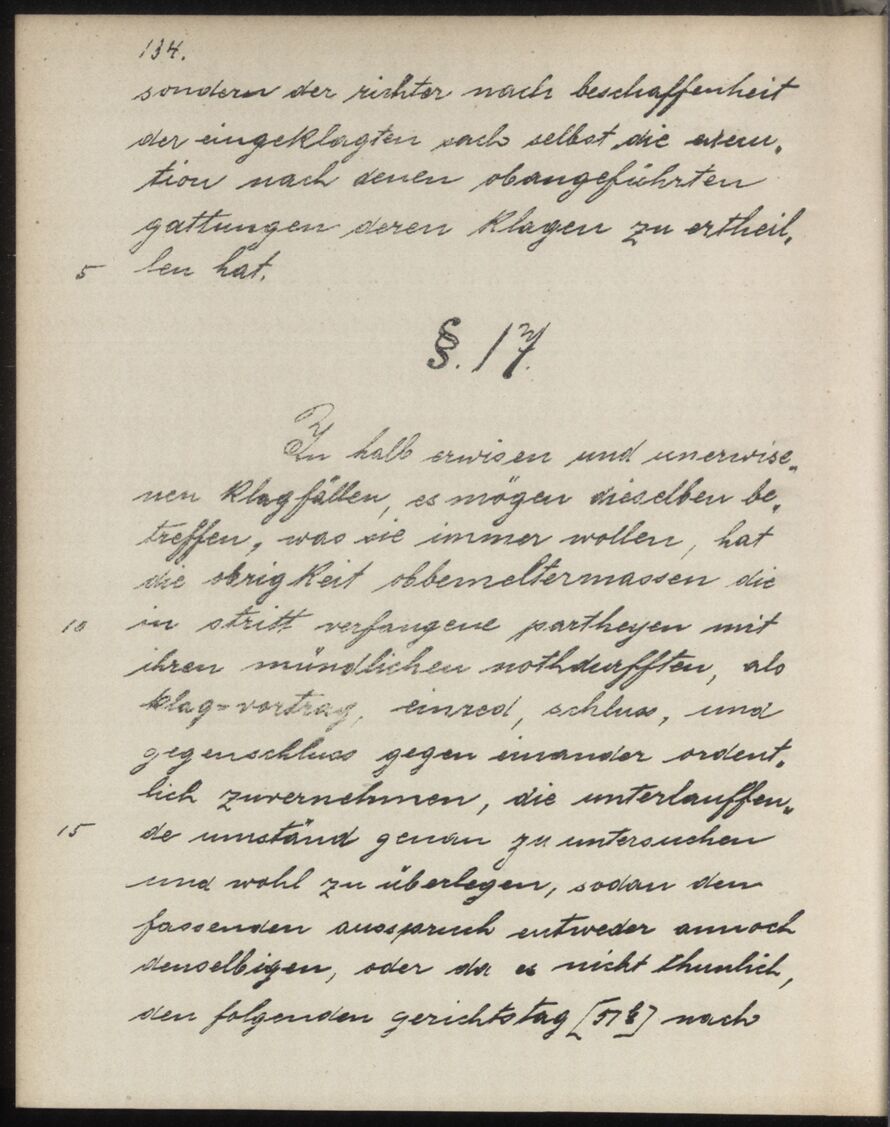 134.
sondern der richter nach beschaffenheit
der eingeklagten sach selbst die execu„
tion nach denen obangeführten
gattungen deren klagen zu ertheil„
5 len hat.
§. 17.
In halb erwisen und unerwise„
nen klagfällen, es mögen dieselben be„
treffen, was sie immer wollen, hat
die obrigkeit obbemeltermassen die
10 in stritt verfangene partheyen mit
ihren mündlichen nothdurfften, als
klag=vortrag, einred, schluss, und
gegenschluss gegen einander ordent„
lich zuvernehmen, die unterlauffen„
15 de umständ genau zu untersuchen
und wohl zu überlegen, sodan den
fassenden ausspruch entweder annoch
denselbigen, oder da es nicht thunlich,
den folgenden gerichtstag [51b] nach